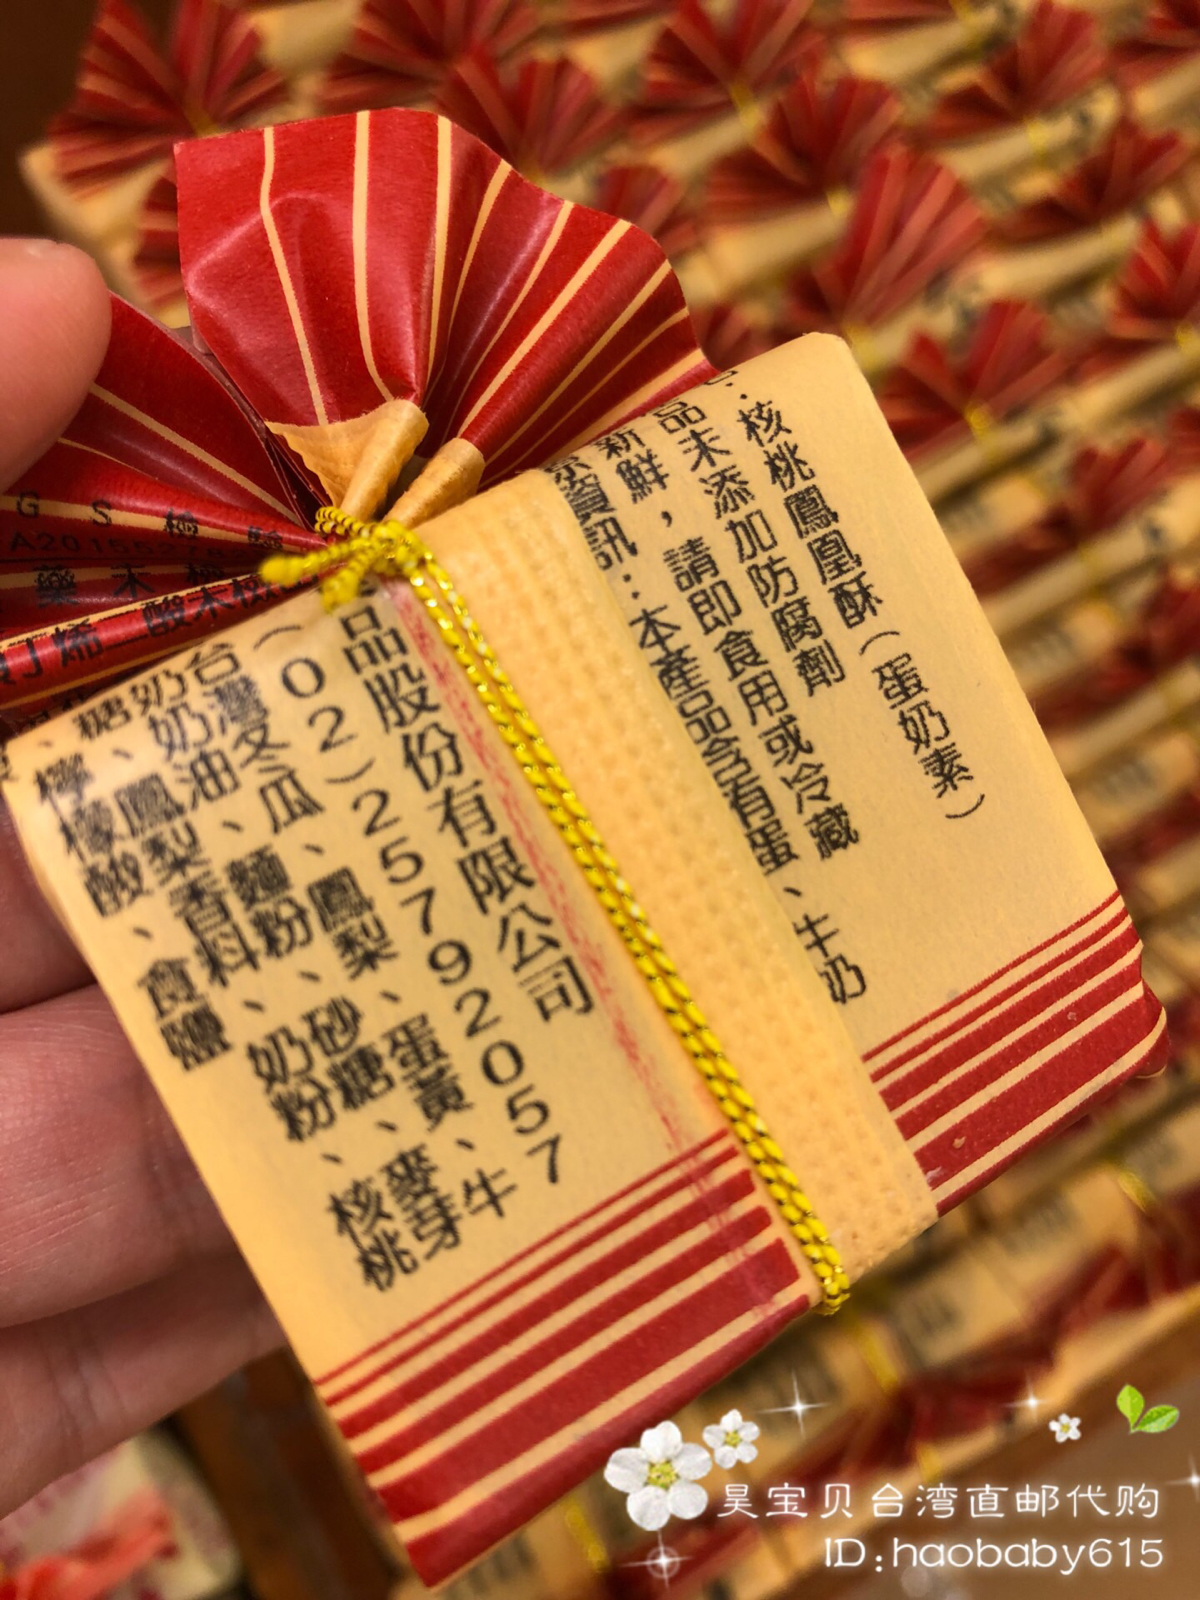 核桃鳳凰酥(蛋奶素)
品未添加防腐劑
新鮮，請即食用或冷藏
資訊:本產品含有蛋、牛奶
品股份有限公司
(02)25792057
台灣冬瓜、鳳梨、蛋黃、牛
奶油、麵粉、砂糖、麥芽
糖、鳳梨香料、奶粉、核桃
檸檬酸、食鹽
G S 檢驗
昊宝贝台湾直邮代购
ID:haobaby615